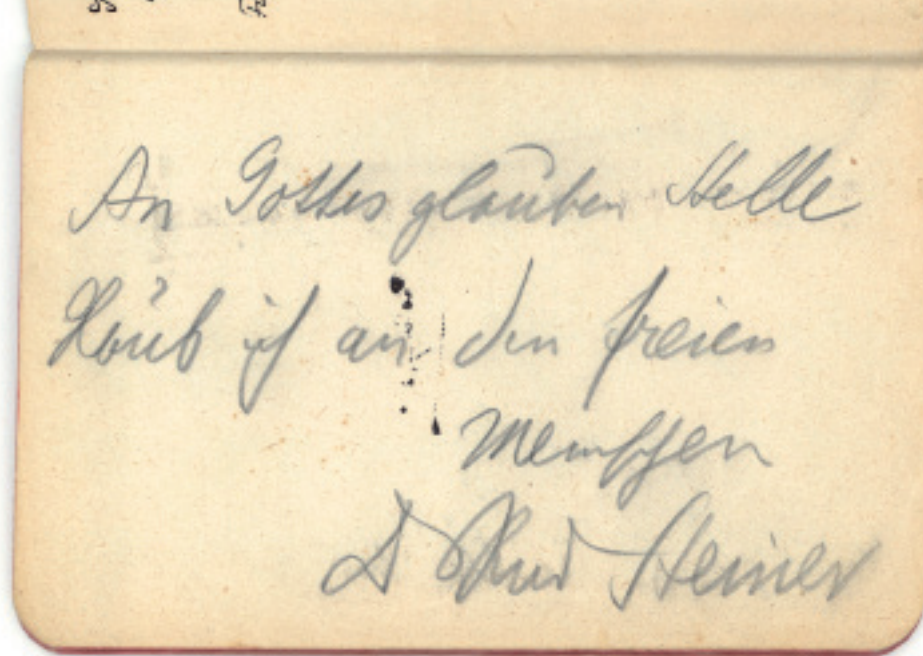 An Gottes glauben Stelle
Glaub ich an den freien
Menschen
Dr Rud Steiner